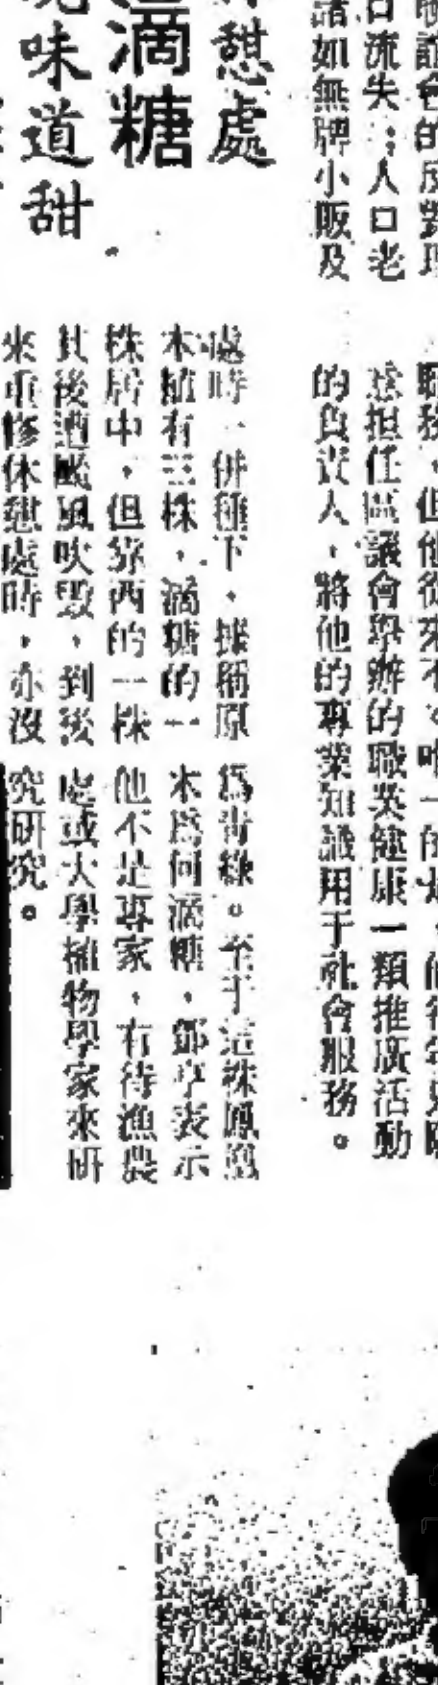 口流失；人口老
諸如無牌小販及
意担任區議會舉辦的職業健康一類推廣活動
的負責人，將他的專業知識用于社會服務。
甜處
滴糖
味道甜
處時一併種下，據稱原
木植有三株，滴糖的一
株居中，但靠西的一株
其後遭颶風吹毀，到後
來重修休憩處時，亦沒
為青綠。至于這株鳳凰
木為何滴糖，鄧亨表示
他不是專家，有待漁農
處或大學植物學家來研
究研究。